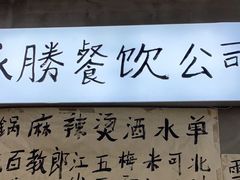 勝餐饮公司
鍋麻辣烫酒水单
百教郎江五梅米可北